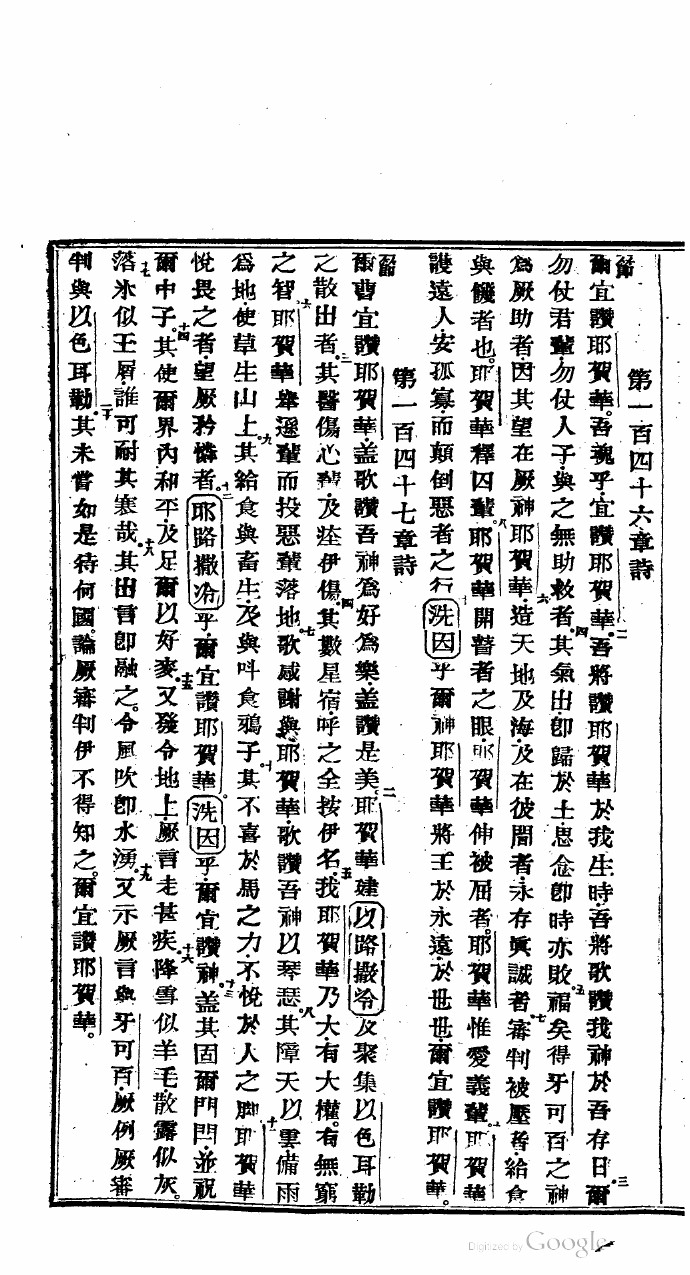 第一百四十六章詩
爾宜讚耶賀華。吾魂乎宜讚耶賀華。二吾將讚耶賀華於我生時吾將歌讚我神於吾存日三爾
勿仗君輩勿仗人子與之無助救者。四其氣出即歸於土思念即時亦敗五福矣得牙可百之神
為厥助者因其望在厥神耶賀華。六造天地及海及在彼間者永存眞誠者七審判被壓者給食
與饑者也。耶賀華釋囚輩八耶賀華開瞽者之眼耶賀華伸被屈者。耶賀華惟愛義輩耶賀華
護遠人安孤寡而顛倒惡者之行十洗因乎爾神耶賀華將王於永遠於世世爾宜讚耶賀華。
第一百四十七章詩
爾曹宜讚耶賀華蓋歌讚吾神為好為樂蓋讚是美二耶賀華建以路撒冷及聚集以色耳勒
之散出者。三其醫傷心輩及痊伊傷。四其數星宿呼之全按伊名。五我耶賀華乃大有大權。有無窮
之智六耶賀華舉遜輩而投惡輩落地七歌感謝與耶賀華歌讚吾神以琴瑟八其障天以雲備雨
為地使草生山上。九其給食與畜生及與叫食鴉子十其不喜於馬之力不悅於人之脚十一耶賀華
悅畏之者望厥矜憐者。十二耶路撒冷乎爾宜讚耶賀華。洗因乎爾宜讚神十三蓋其固爾門閂並祝
爾中子。十四其使爾界內和平及足爾以好麥十五又發令地上厥言走甚疾十六降雪似羊毛散露似灰。
十七落氷似玉屑誰可耐其寒哉十八其出言即融之。令風吹即水湧十九又示厥言與牙可百厥例厥審
判與以色耳勒二十其未嘗如是待何國。論厥審判伊不得知之。爾宜讚耶賀華。
Digitized by Google